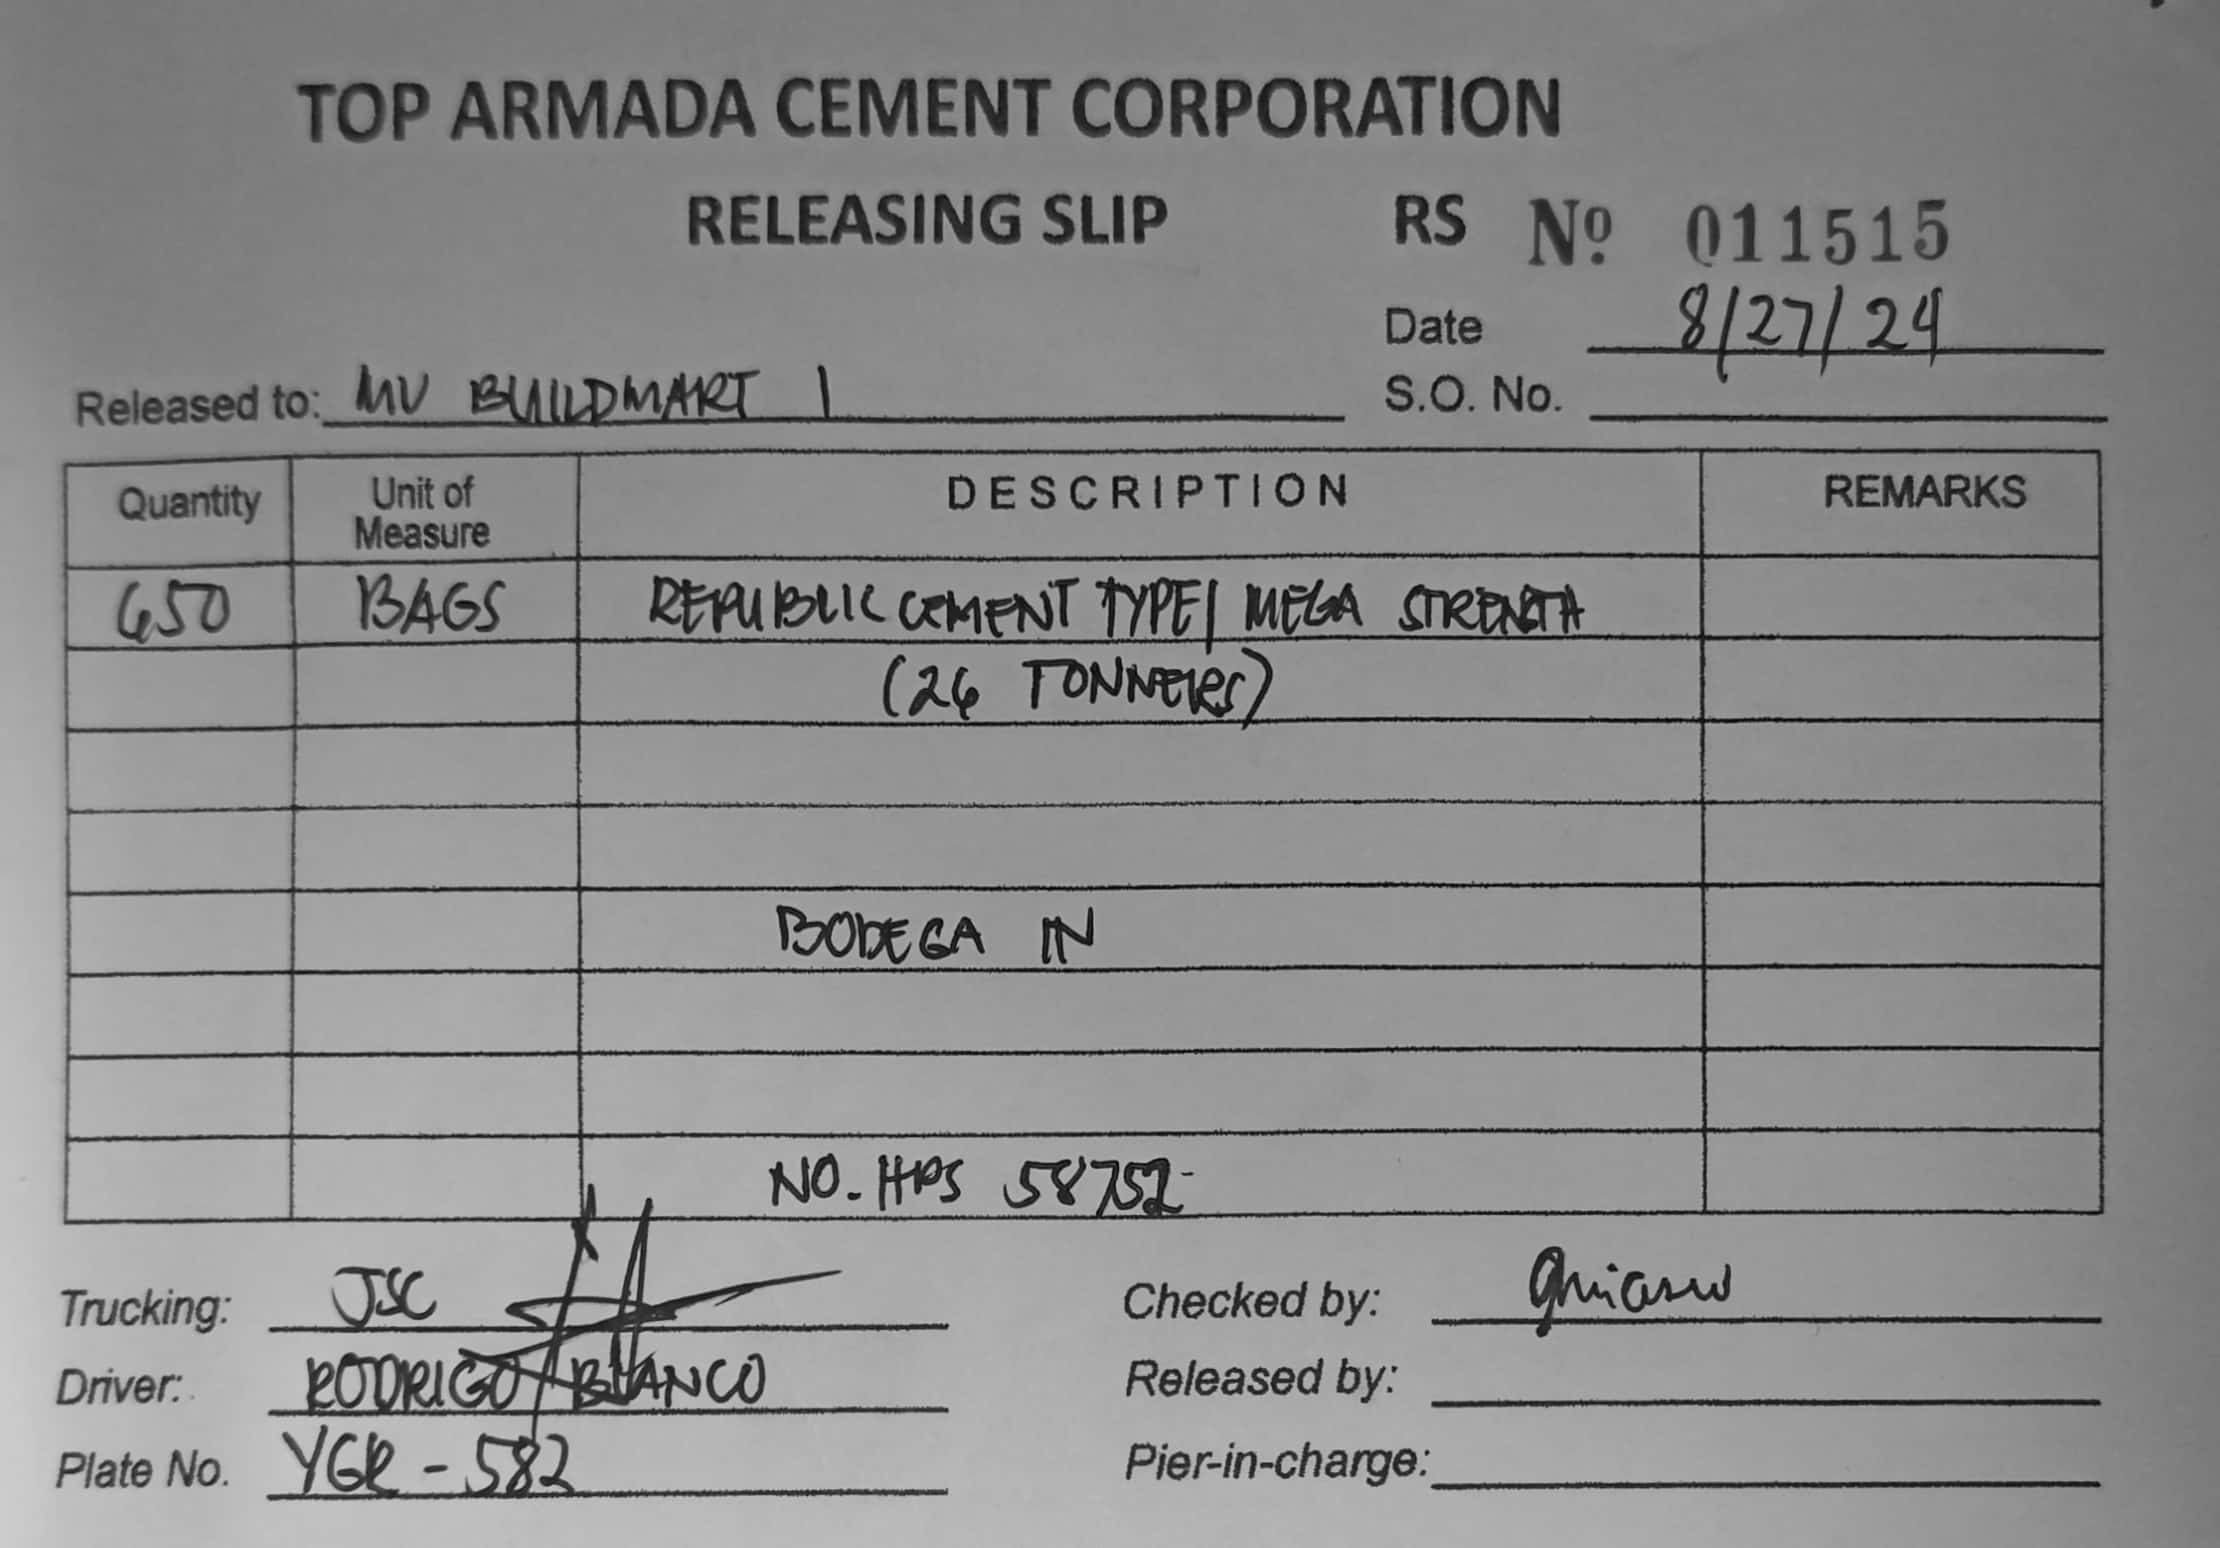 TOP ARMADA CEMENT CORPORATION
RELEASING SLIP RS Nº 011515
Date 8/27/24
Released to: MV BUILDMART 1 S.O. No.
Quantity Unit of Measure DESCRIPTION REMARKS
650 BAGS REPUBLIC CEMENT TYPE 1 MEGA STRENGTH
(26 TONNERS)
BODEGA IN
NO. HPS 58752
Trucking: JSC Checked by:
Driver: RODRIGO BLANCO Released by:
Plate No. YGR - 582 Pier-in-charge: